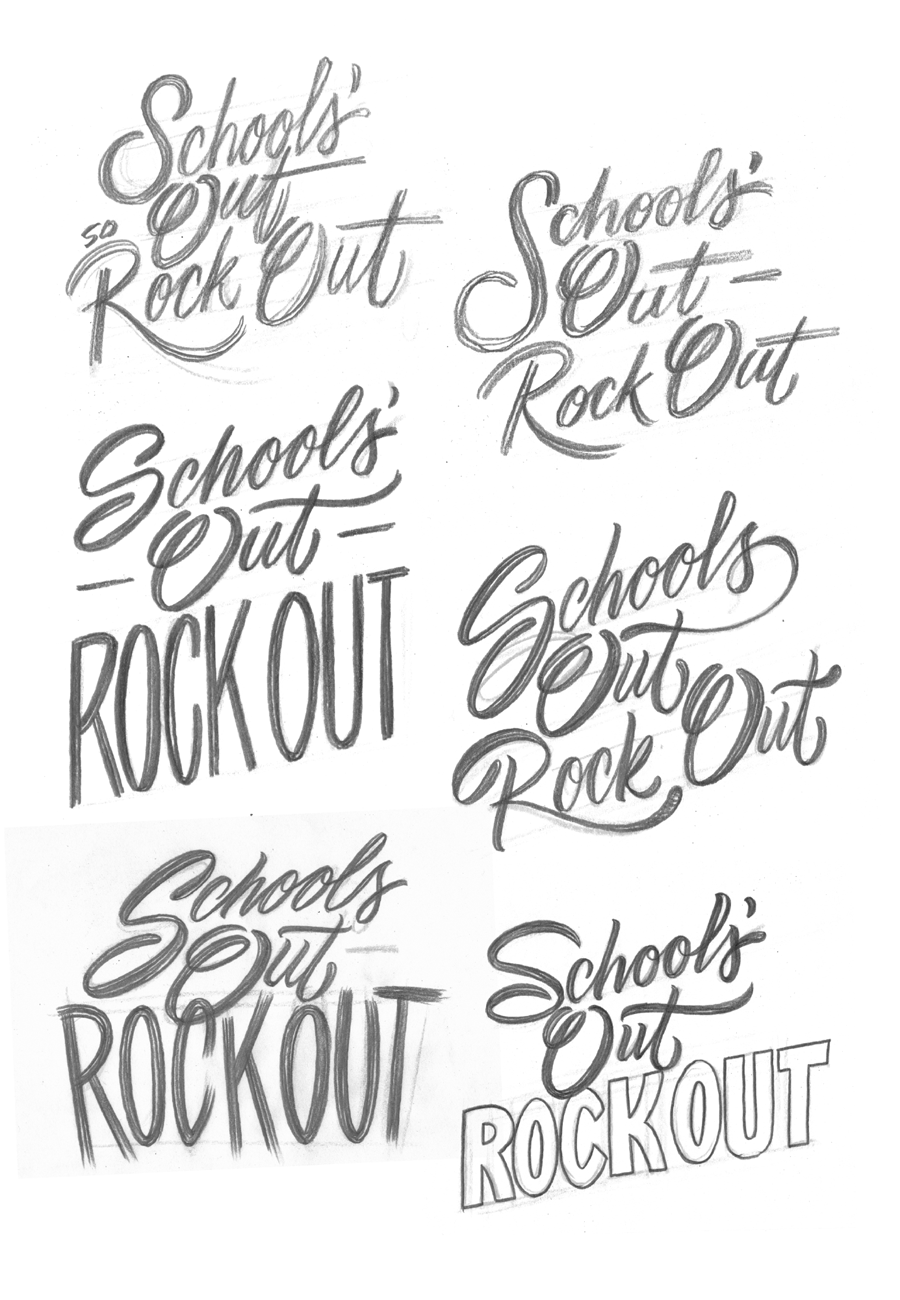 Schools'
Out
so
Rock Out
Schools'
Out –
Rock Out
Schools'
– Out –
ROCK OUT
Schools
Out
Rock Out
Schools
Out –
ROCK OUT
Schools'
Out
ROCK OUT